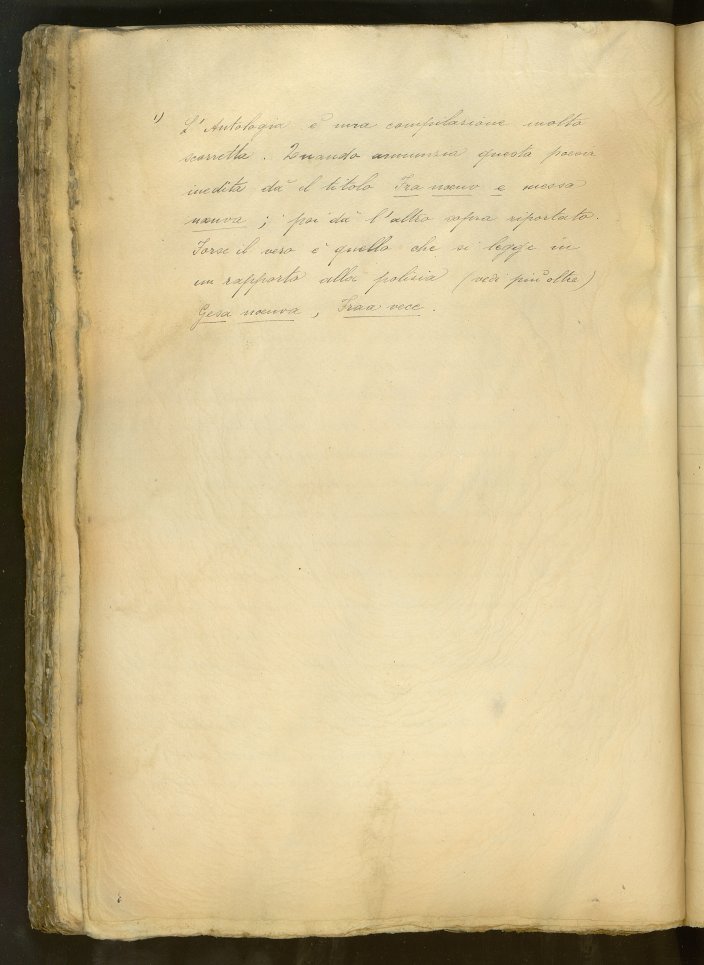 1) L'Antologia è una compilazione molto
scorretta. Quando annunzia questa poesia
inedita dà il titolo Fra nœuv e messa
nœuva; poi dà l'altro sopra riportato.
Forse il vero è quello che si legge in
un rapporto alla polizia (vedi più oltre)
Gesa nœuva, Fraa vecc.